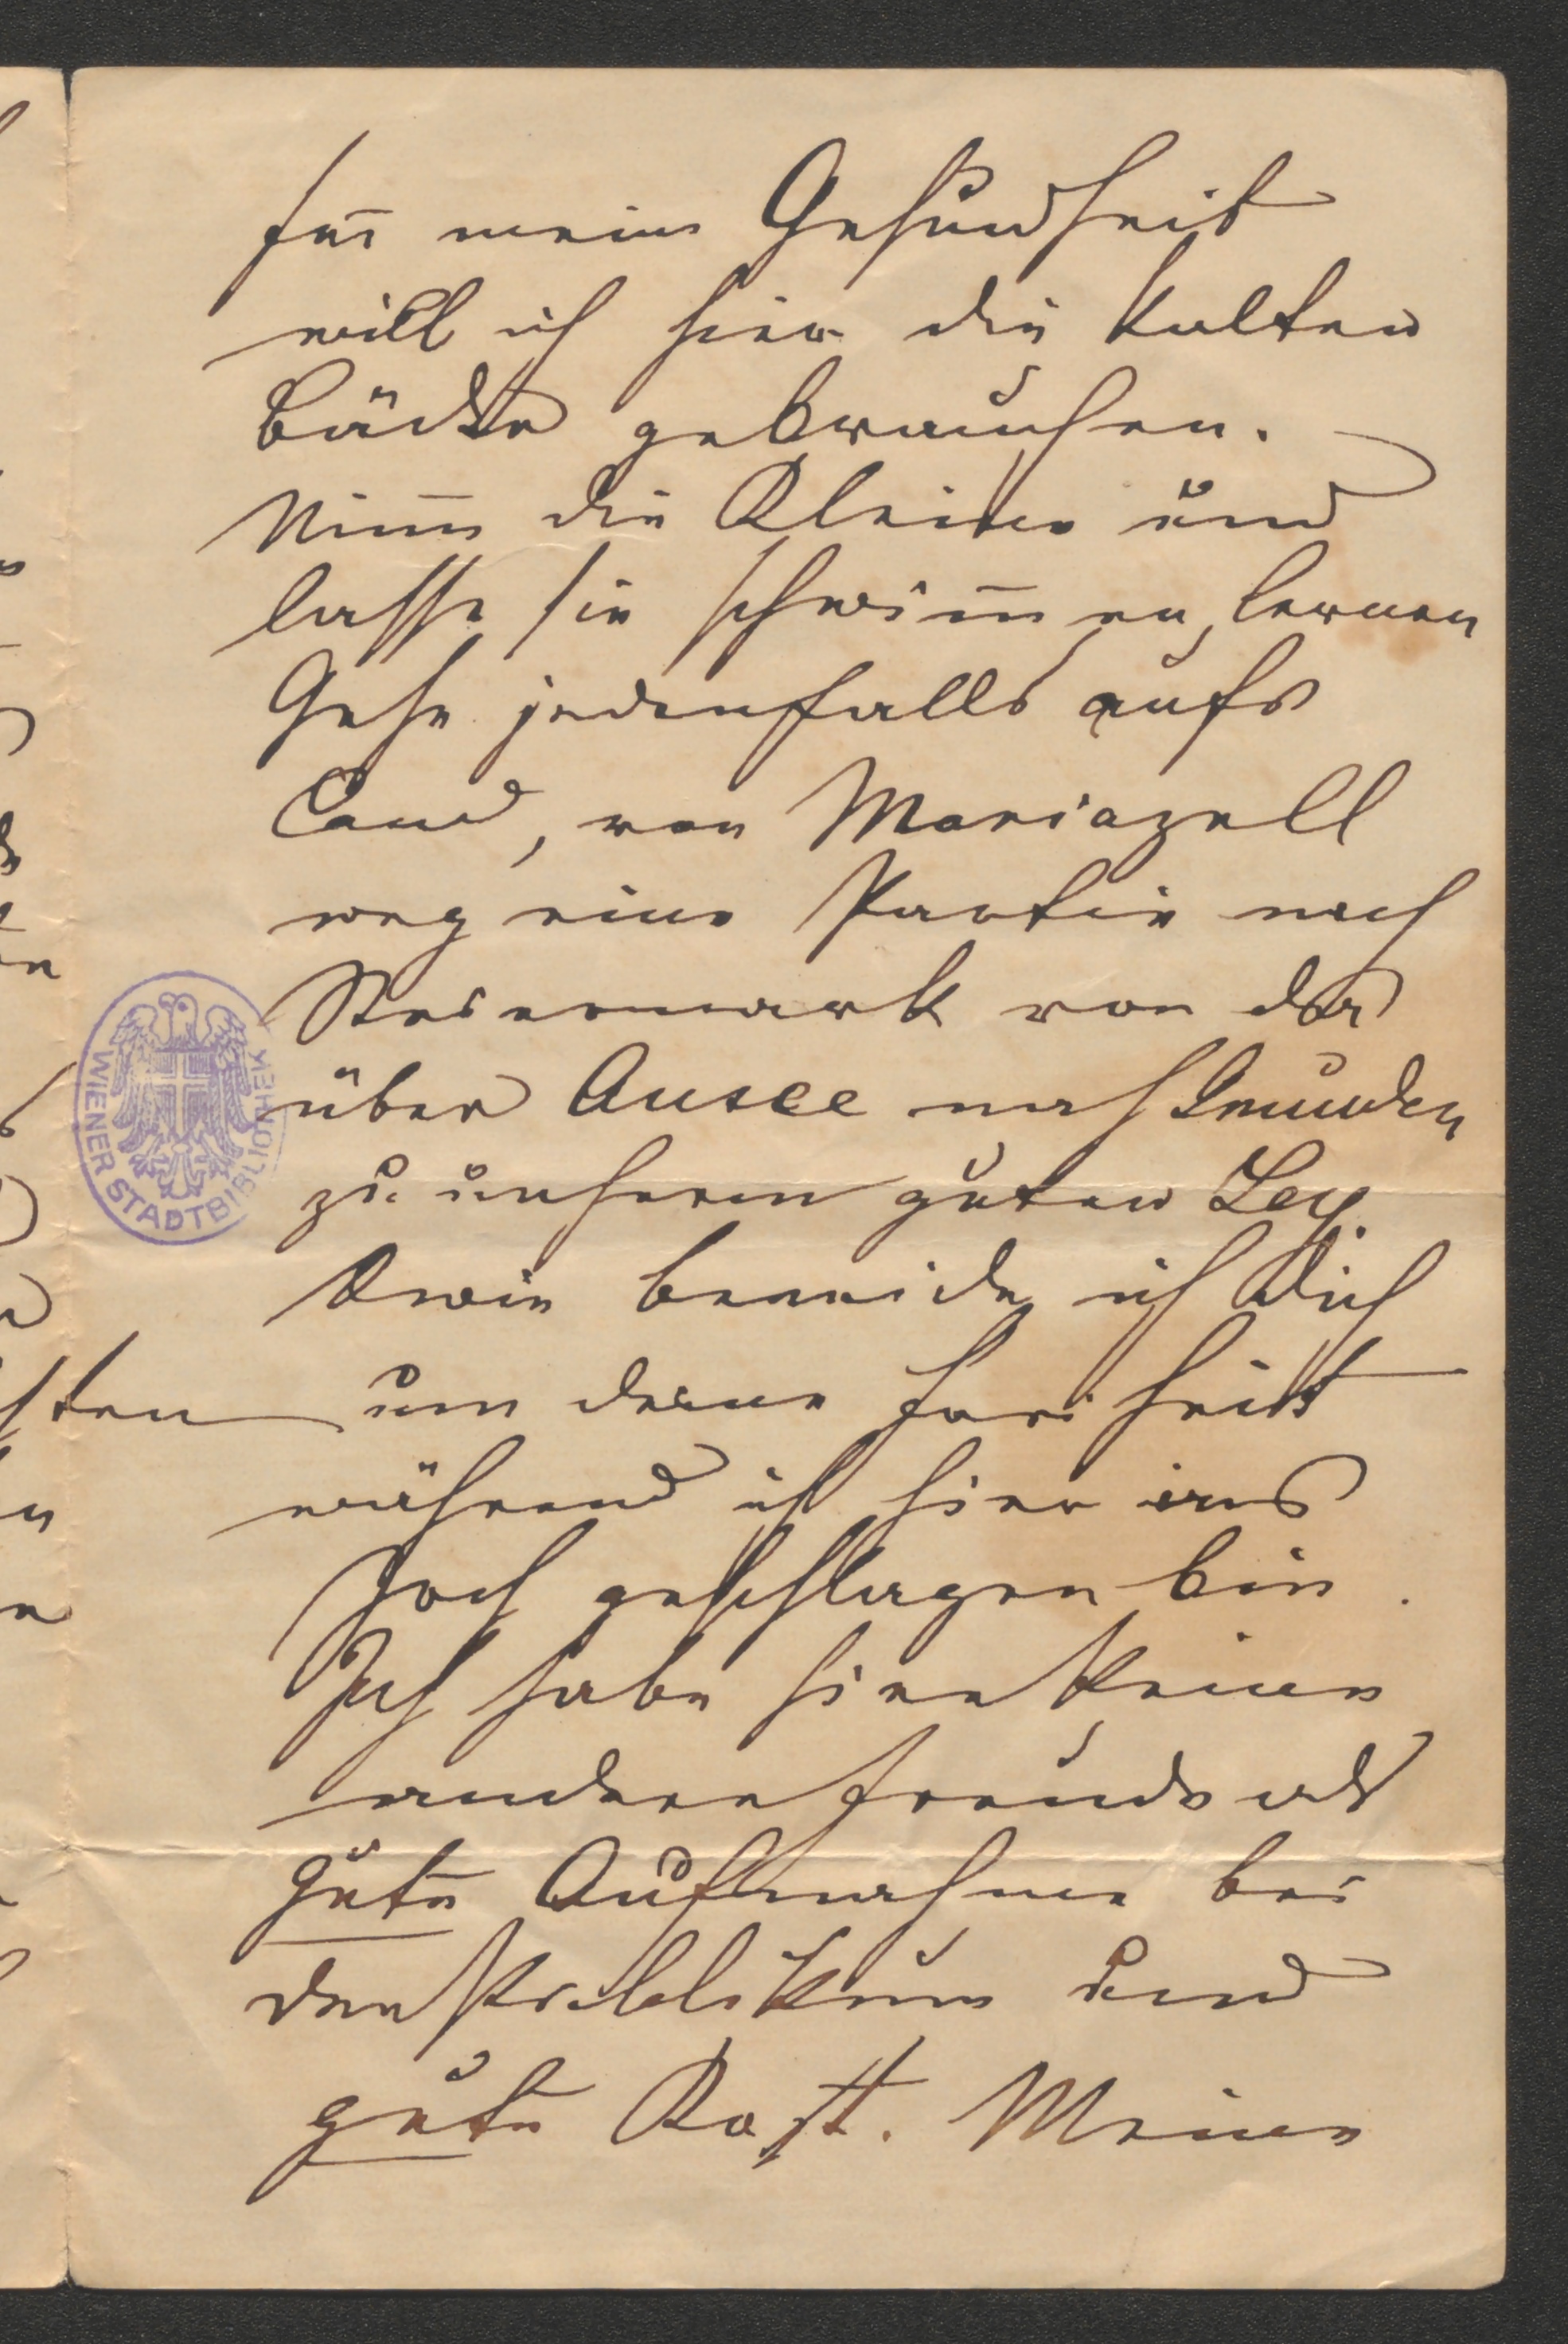 für meine Gesundheit
will ich hier die kalten
Bäder gebrauchen.
Nimm die Kleine und
lasse sie schwimmen lernen
Gehe jedenfalls aufs
Land, von Mariazell
weg eine Partie nach
Steiermark von da
über Aussee nach Gmunden
zu unserem guten Ley.
wie beneide ich Dich
um deine Freiheit
während ich hier ins
Joch geschlagen bin.
Ich habe hier keine
andere Freude als
gute Aufnahme bei
dem Publikum und
gute Kost. Meine
WIENER STADTBIBLIOTHEK